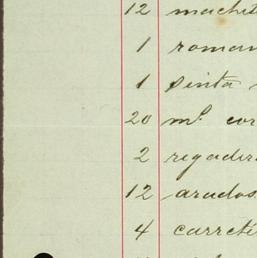 12 machet
1 roman
1 pinta
20 m.s cor
2 regader
12 arados
4 carreti